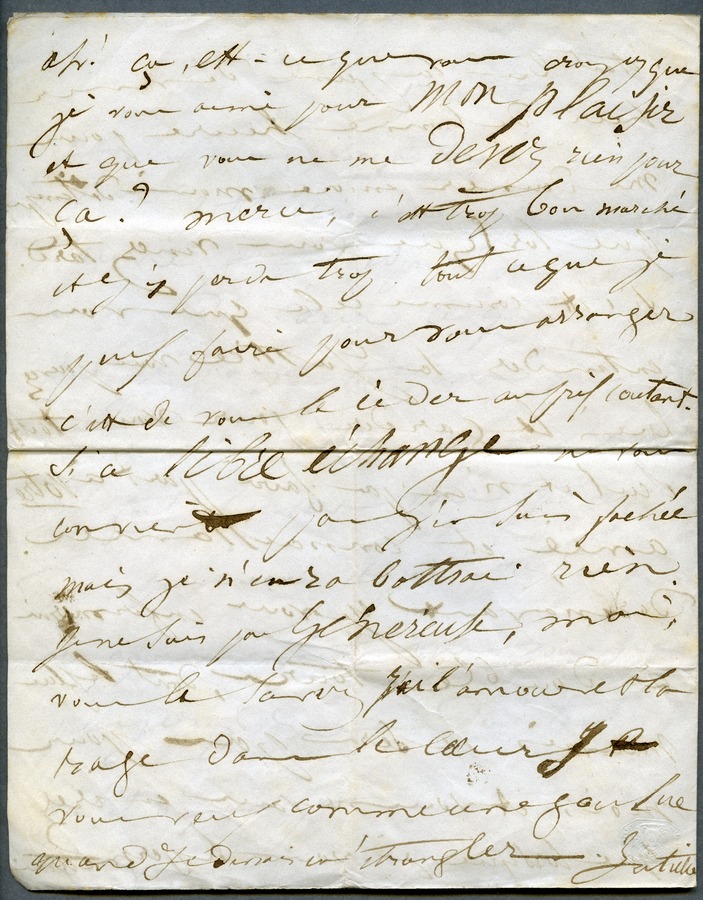 ah! ça, est-ce que vous croyez que
je vous aime pour mon plaisir
et que vous ne me devez rien pour
ça? merci, c'est trop bon marché
et j'y perds trop. tout ce que je
puis faire pour vous arranger
c'est de vous le céder au prix coutant.
Si ce libre échange ne vous
convient pas j'en suis fachée
mais je n'en rabattrai rien.
je ne suis pas généreuse, moi,
vous le savez j'ai l'amour et la
rage dans le cœur Je
vous veux comme une goulue
quand je devrais m'étrangler